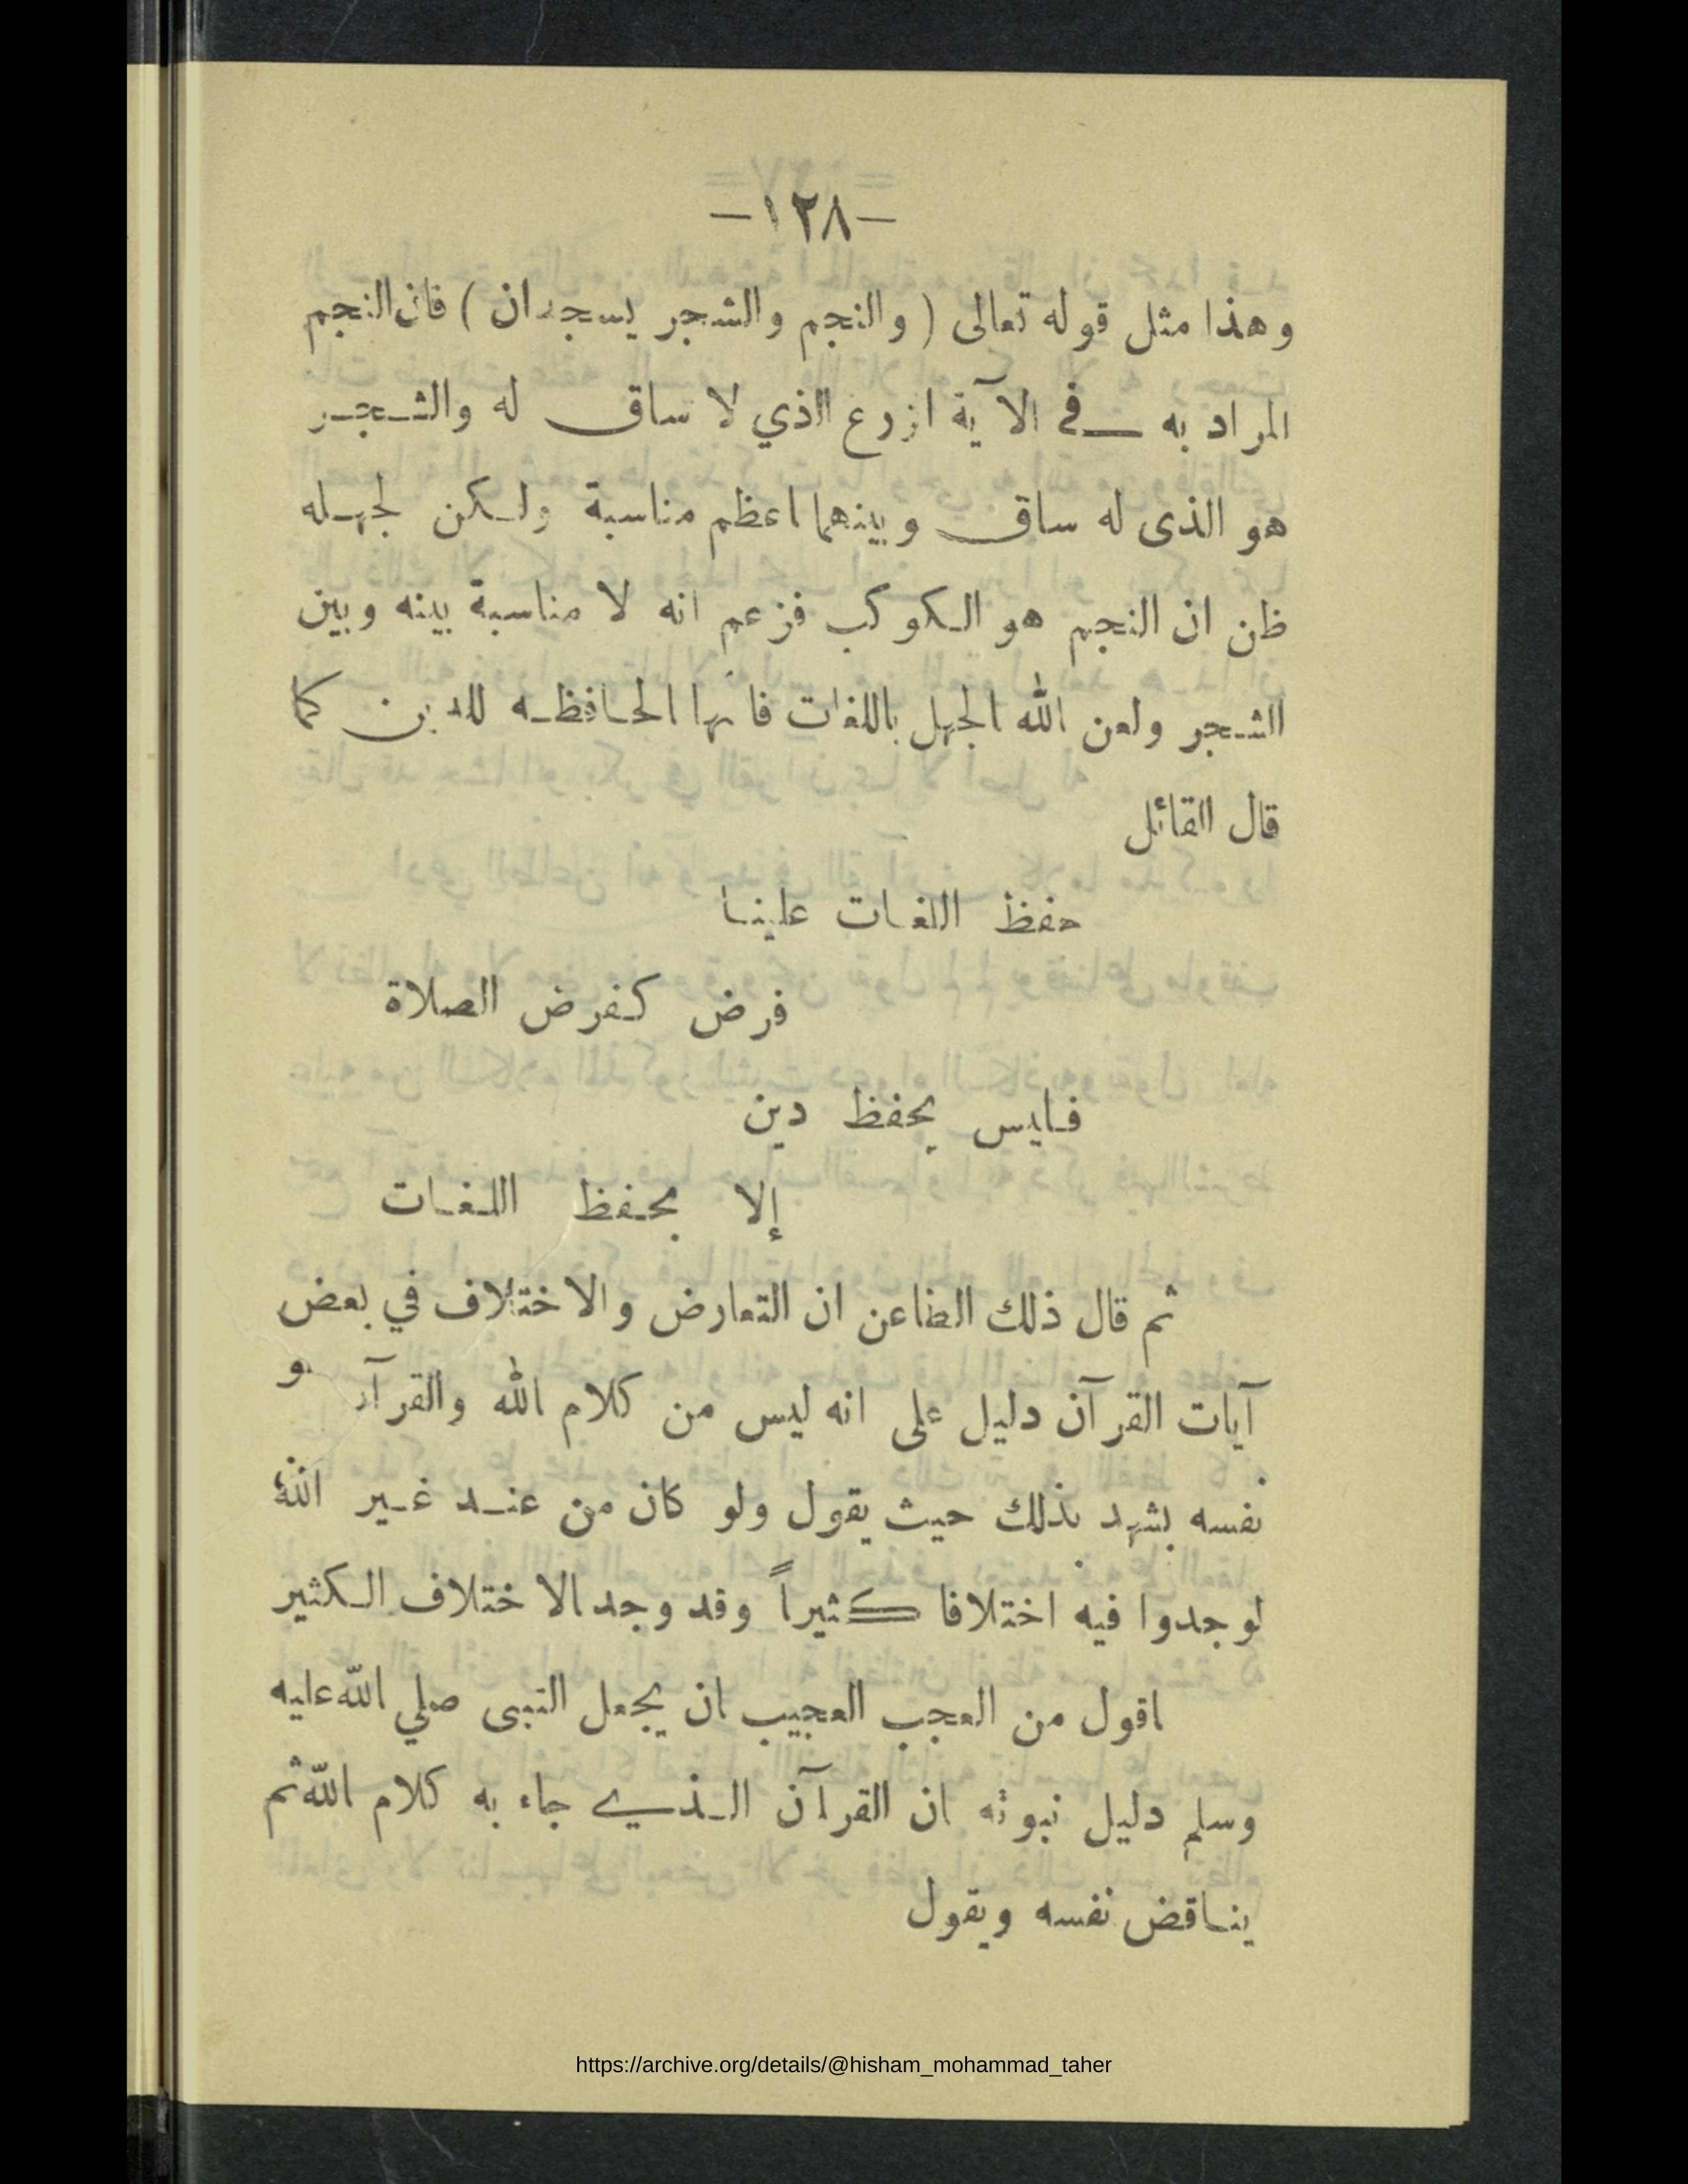 -١٢٨-
وهذا مثل قوله تعالى ( والنجم والشجر يسجدان ) فان النجم
المراد به في الآية الزرع الذي لا ساق له والشجر
هو الذى له ساق وبينهما اعظم مناسبة ولكن لجهله
ظن ان النجم هو الكوكب فزعم انه لا مناسبة بينه وبين
الشجر ولعن الله الجهل باللغات فانها الحافظه للدين كما
قال القائل
حفظ اللغات علينا
فرض كفرض الصلاة
فليس يحفظ دين
إلا بحفظ اللغات
ثم قال ذلك الطاعن ان التعارض والاختلاف في بعض
آيات القرآن دليل على انه ليس من كلام الله والقرآن هو
نفسه يشهد بذلك حيث يقول ولو كان من عند غير الله
لوجدوا فيه اختلافا كثيراً وقد وجد الاختلاف الكثير
اقول من العجب العجيب ان يجعل النبى صلي الله عليه
وسلم دليل نبوته ان القرآن الذي جاء به كلام الله ثم
يناقض نفسه ويقول
https://archive.org/details/@hisham_mohammad_taher